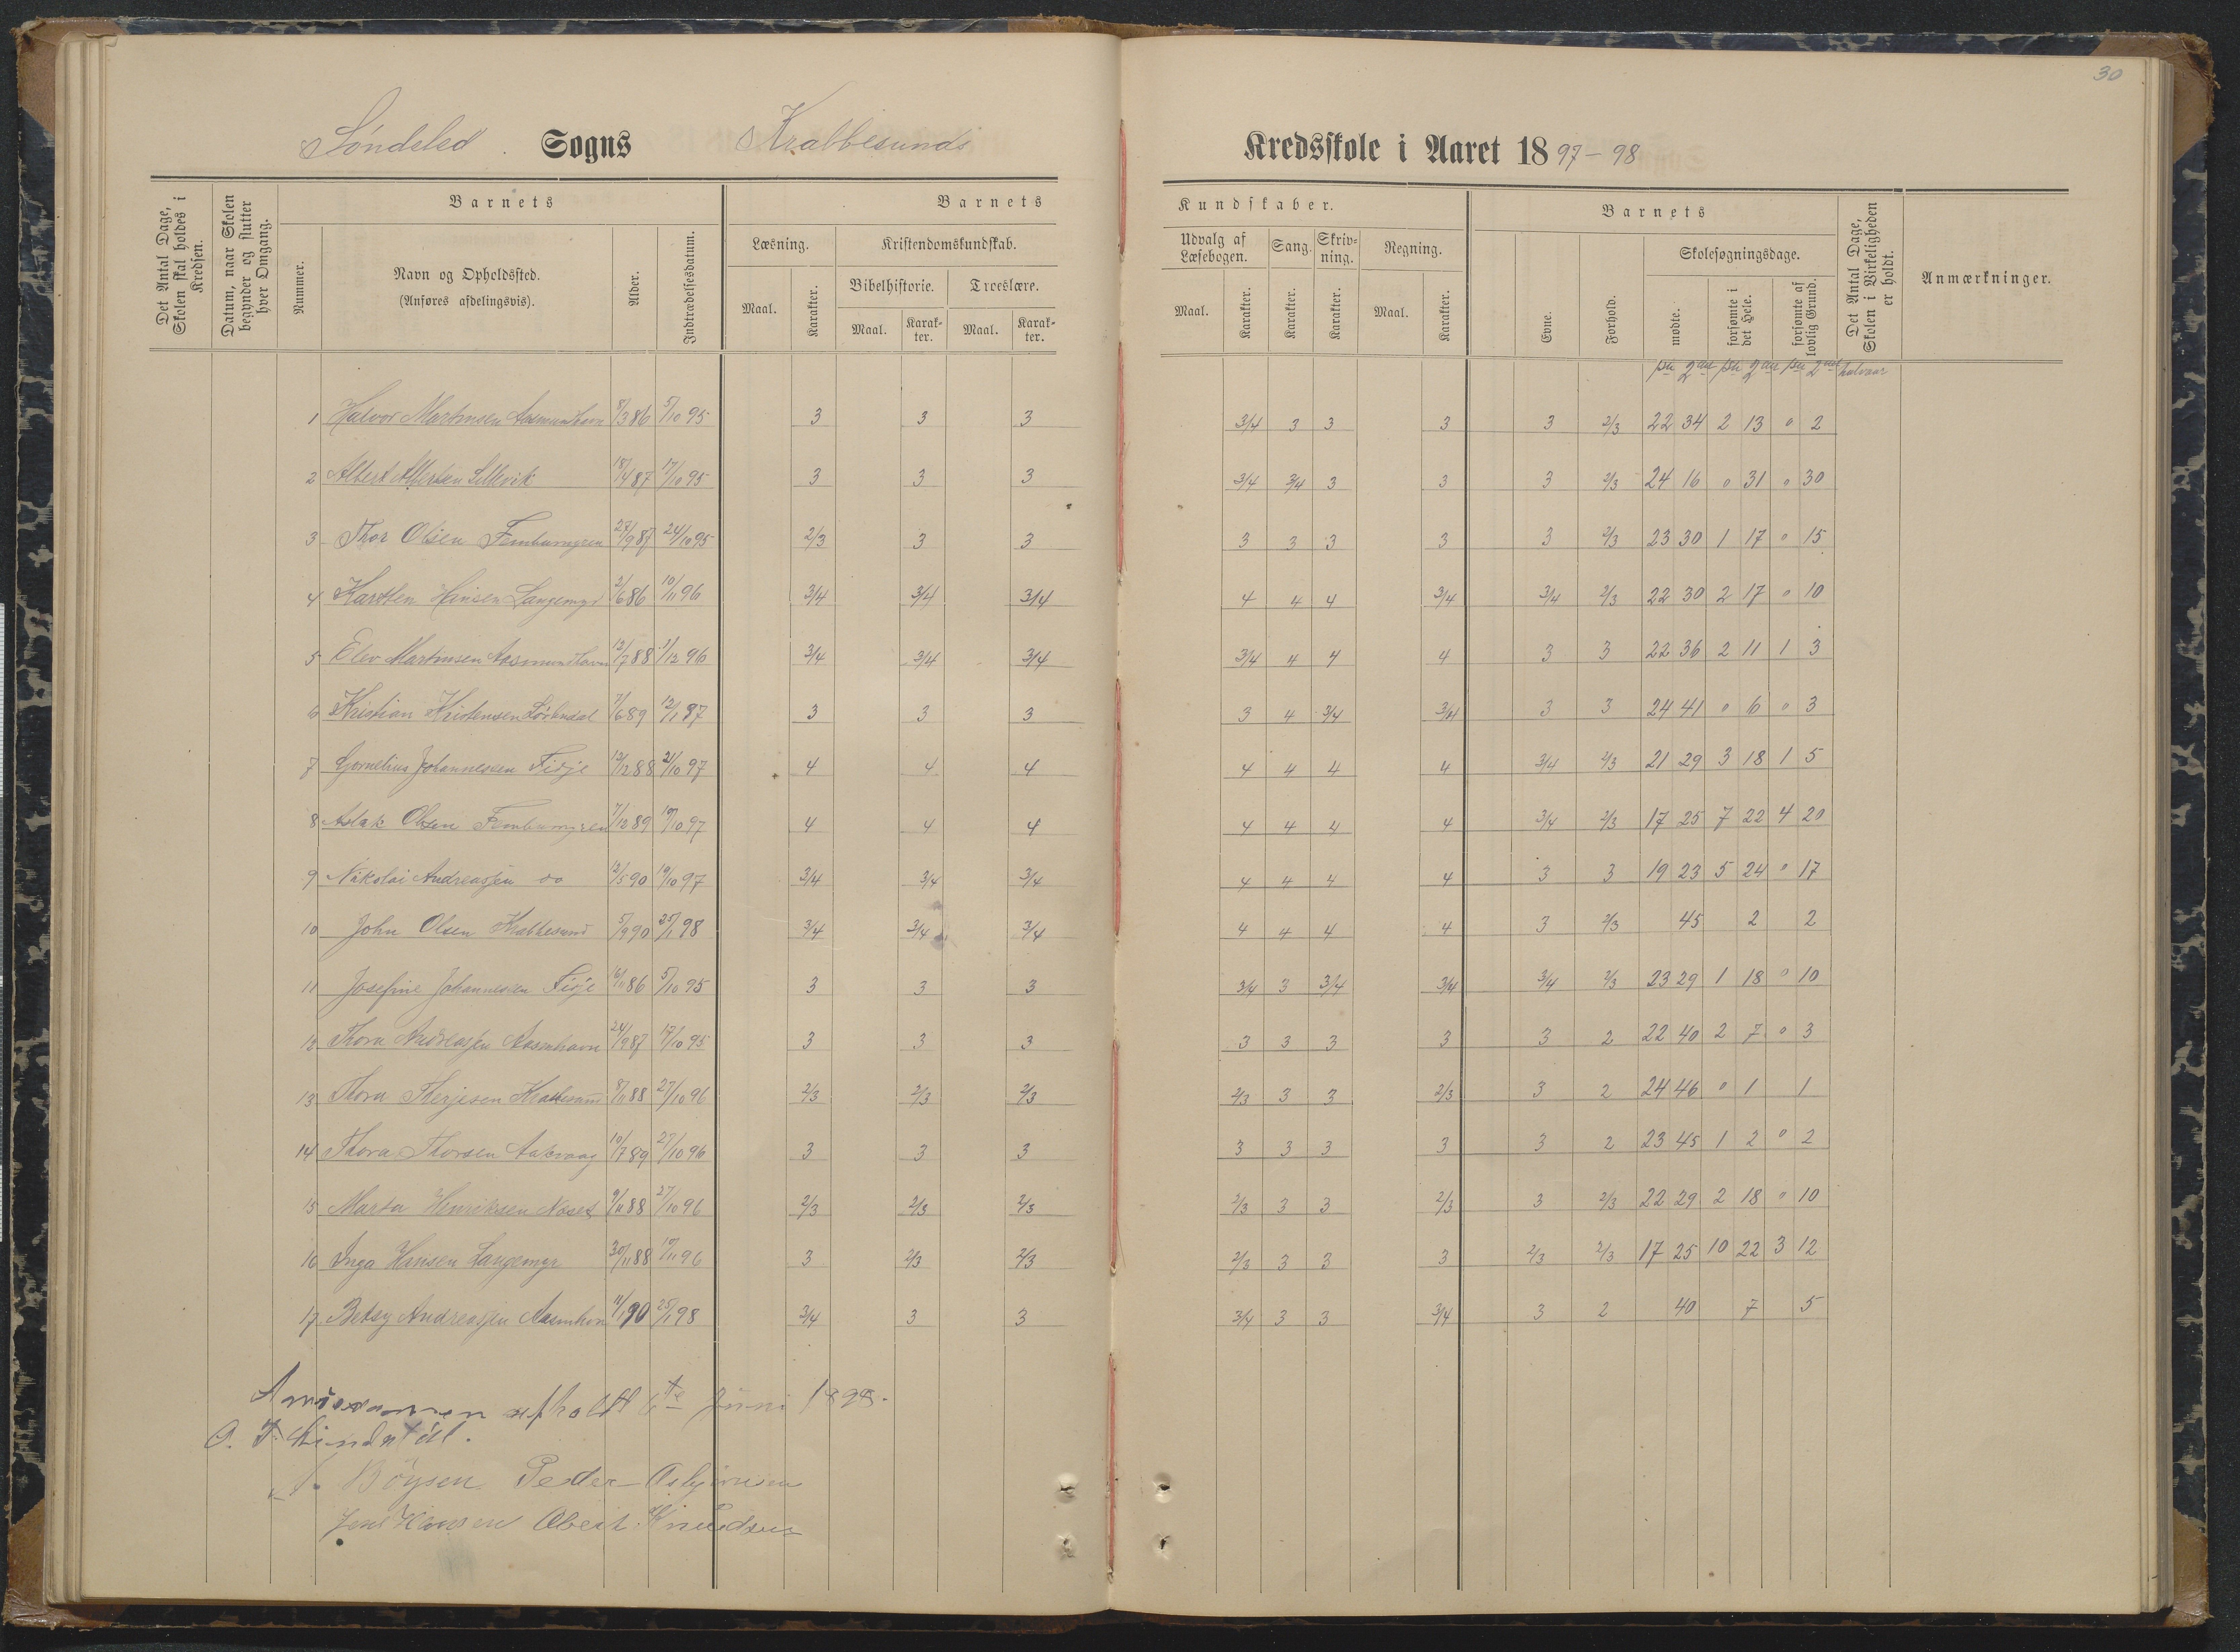 30
Søndeled Sogns Krabbesunds Kredsskole i Aaret 1897-98
Det Antal Dage, Skolen skal holdes i Kredsen.
Datum, naar Skolen begynder og slutter hver Omgang.
Barnets
Nummer.
Navn og Opholdssted.
(Anføres afdelingsvis).
Alder.
Indtrædelsesdatum.
Barnets Kundskaber.
Læsning.
Maal. Karakter.
Kristendomskundskab.
Bibelhistorie. Troeslære.
Maal. Karakter. Maal. Karakter.
Udvalg af Læsebogen. Sang. Skrivning. Regning.
Maal. Karakter. Karakter. Karakter. Maal. Karakter.
Barnets
Evne. Forhold.
Skolesøgningsdage.
mødte. forsømte i det Hele. forsømte af lovlig Grund.
Det Antal Dage, Skolen i Virkeligheden er holdt.
Anmærkninger.
halvaar
1 Halvor Martinsen Aasmundhavn 8/3 86 5/10 95 3 3 3 3/4 3 3 3 3 2/3 22 34 2 13 " 2
2 Albert Albertsen Lillevik 18/4 87 17/10 95 3 3 3 3/4 3/4 3 3 3 2/3 24 16 " 31 " 30
3 Thor Olsen 27/9 87 24/10 95 2/3 3 3 3 3 3 3 3 2/3 23 30 1 17 " 15
4 Karsten Hansen Langemyr 2/6 86 10/11 96 3/4 3/4 3/4 4 4 4 3/4 3/4 2/3 22 30 2 17 " 10
5 Elev Martinsen Aasmundhavn 12/7 88 1/12 96 3/4 3/4 3/4 3/4 4 4 4 3 3 22 36 2 11 1 3
6 Kristian Kristensen 7/6 89 12/1 97 3 3 3 3 4 3/4 3/4 3 3 24 41 " 6 " 3
7 Cornelius Johannessen Fisje 12/12 88 21/10 97 4 4 4 4 4 4 4 3/4 2/3 21 29 3 18 1 5
8 Aslak Olsen 7/12 89 19/10 97 4 4 4 4 4 4 4 3/4 2/3 17 25 7 22 4 20
9 Nikolai Andreassen do 12/5 90 19/10 97 3/4 3/4 3/4 4 4 4 4 3 3 19 23 5 24 " 17
10 John Olsen Krabbesund 5/9 90 25/1 98 3/4 3/4 3/4 4 4 4 4 3 2/3 45 2 2
11 Josefine Johannessen Fisje 16/11 86 5/10 95 3 3 3 3/4 3 3/4 3/4 3/4 2/3 23 29 1 18 " 10
12 Thora Andreassen Aasmhavn 24/9 87 17/10 95 3 3 3 3 3 3 3 3 2 22 40 2 7 " 3
13 Thora Therjesen Krabbesund 8/11 88 27/10 96 2/3 2/3 2/3 2/3 3 3 2/3 3 2 24 46 " 1 1
14 Thora Thorsen Aasvaag 10/7 89 27/10 96 3 3 3 3 3 3 3 3 2 23 45 1 2 " 2
15 Marta Henriksen Næset 9/11 88 27/10 96 2/3 2/3 2/3 2/3 3 3 2/3 3 2/3 22 29 2 18 " 10
16 Inga Hansen Langemyr 30/11 88 17/11 96 3 2/3 2/3 2/3 3 3 3 2/3 2/3 17 25 10 22 3 12
17 Betsy Andreassen Aasmhavn 11/1 90 25/1 98 3/4 3 3 3/4 3 3 3/4 3 2 40 7 5
afholdt 6te Juni 1898.
O. T.
Böysen Peder Asbjørnsen
Jens Hansen Knudsen